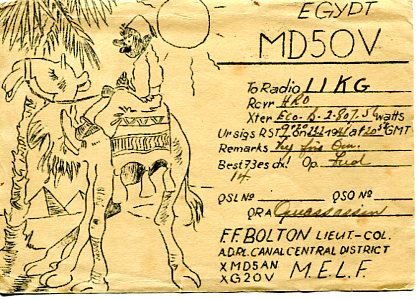 EGYPT
MD5OV
To Radio I1KG
Rcvr HRO
Xter Eco-6-2-807.S watts
Ur sigs RST on 194 at GMT
Remarks
Best 73es dx! Op. Fred
QSL No QSO No
QRA Quassassin
F.F. BOLTON LIEUT-COL.
A.D.R. CANAL CENTRAL DISTRICT
X MD5AN M.E.L.F.
XG2OV